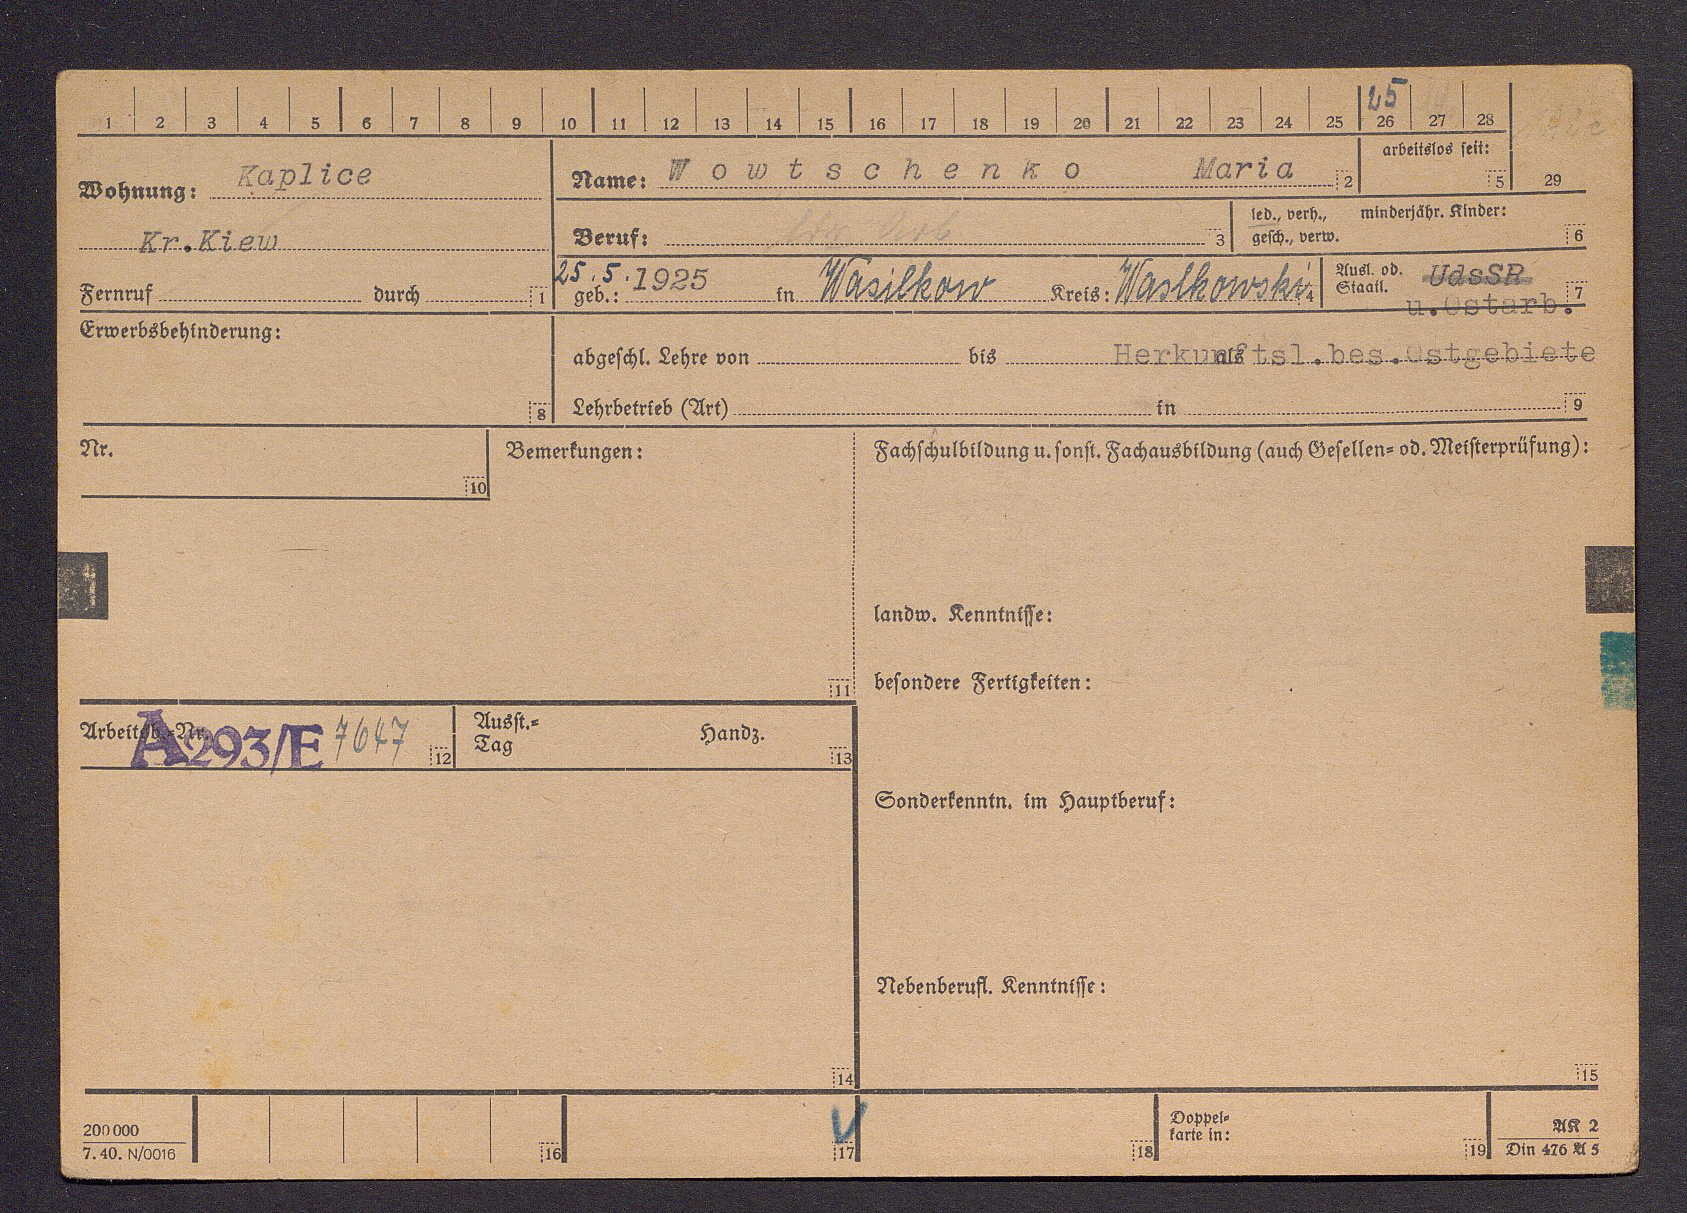 25
1 2 3 4 5 6 7 8 9 10 11 12 13 14 15 16 17 18 19 20 21 22 23 24 25 26 27 28
Wohnung: Kaplice
Name: Wowtschenko Maria 2
arbeitslos seit:
5 29
Kr.Kiew
Beruf: 3
led., verh., minderjähr. Kinder:
gesch., verw. 6
Fernruf durch 1
25.5.1925
geb.: in Wasilkow Kreis: Waslkowski 4
Ausl. od. UdsSR
Staatl. 7
u.Ostarb.
Erwerbsbehinderung:
8
abgeschl. Lehre von bis als
Herkunftsl.bes.Ostgebiete
Lehrbetrieb (Art) in 9
Nr.
10
Bemerkungen:
11
Fachschulbildung u. sonst. Fachausbildung (auch Gesellen= od. Meisterprüfung):
landw. Kenntnisse:
besondere Fertigkeiten:
Arbeitsb.=Nr. A293/E 7647 12
Ausst.=
Tag
Handz. 13
Sonderkenntn. im Hauptberuf:
Nebenberufl. Kenntnisse:
14
15
200000
7.40. N/0016
16
V
17
18
Doppel=
karte in:
19
AK 2
Din 476 A 5